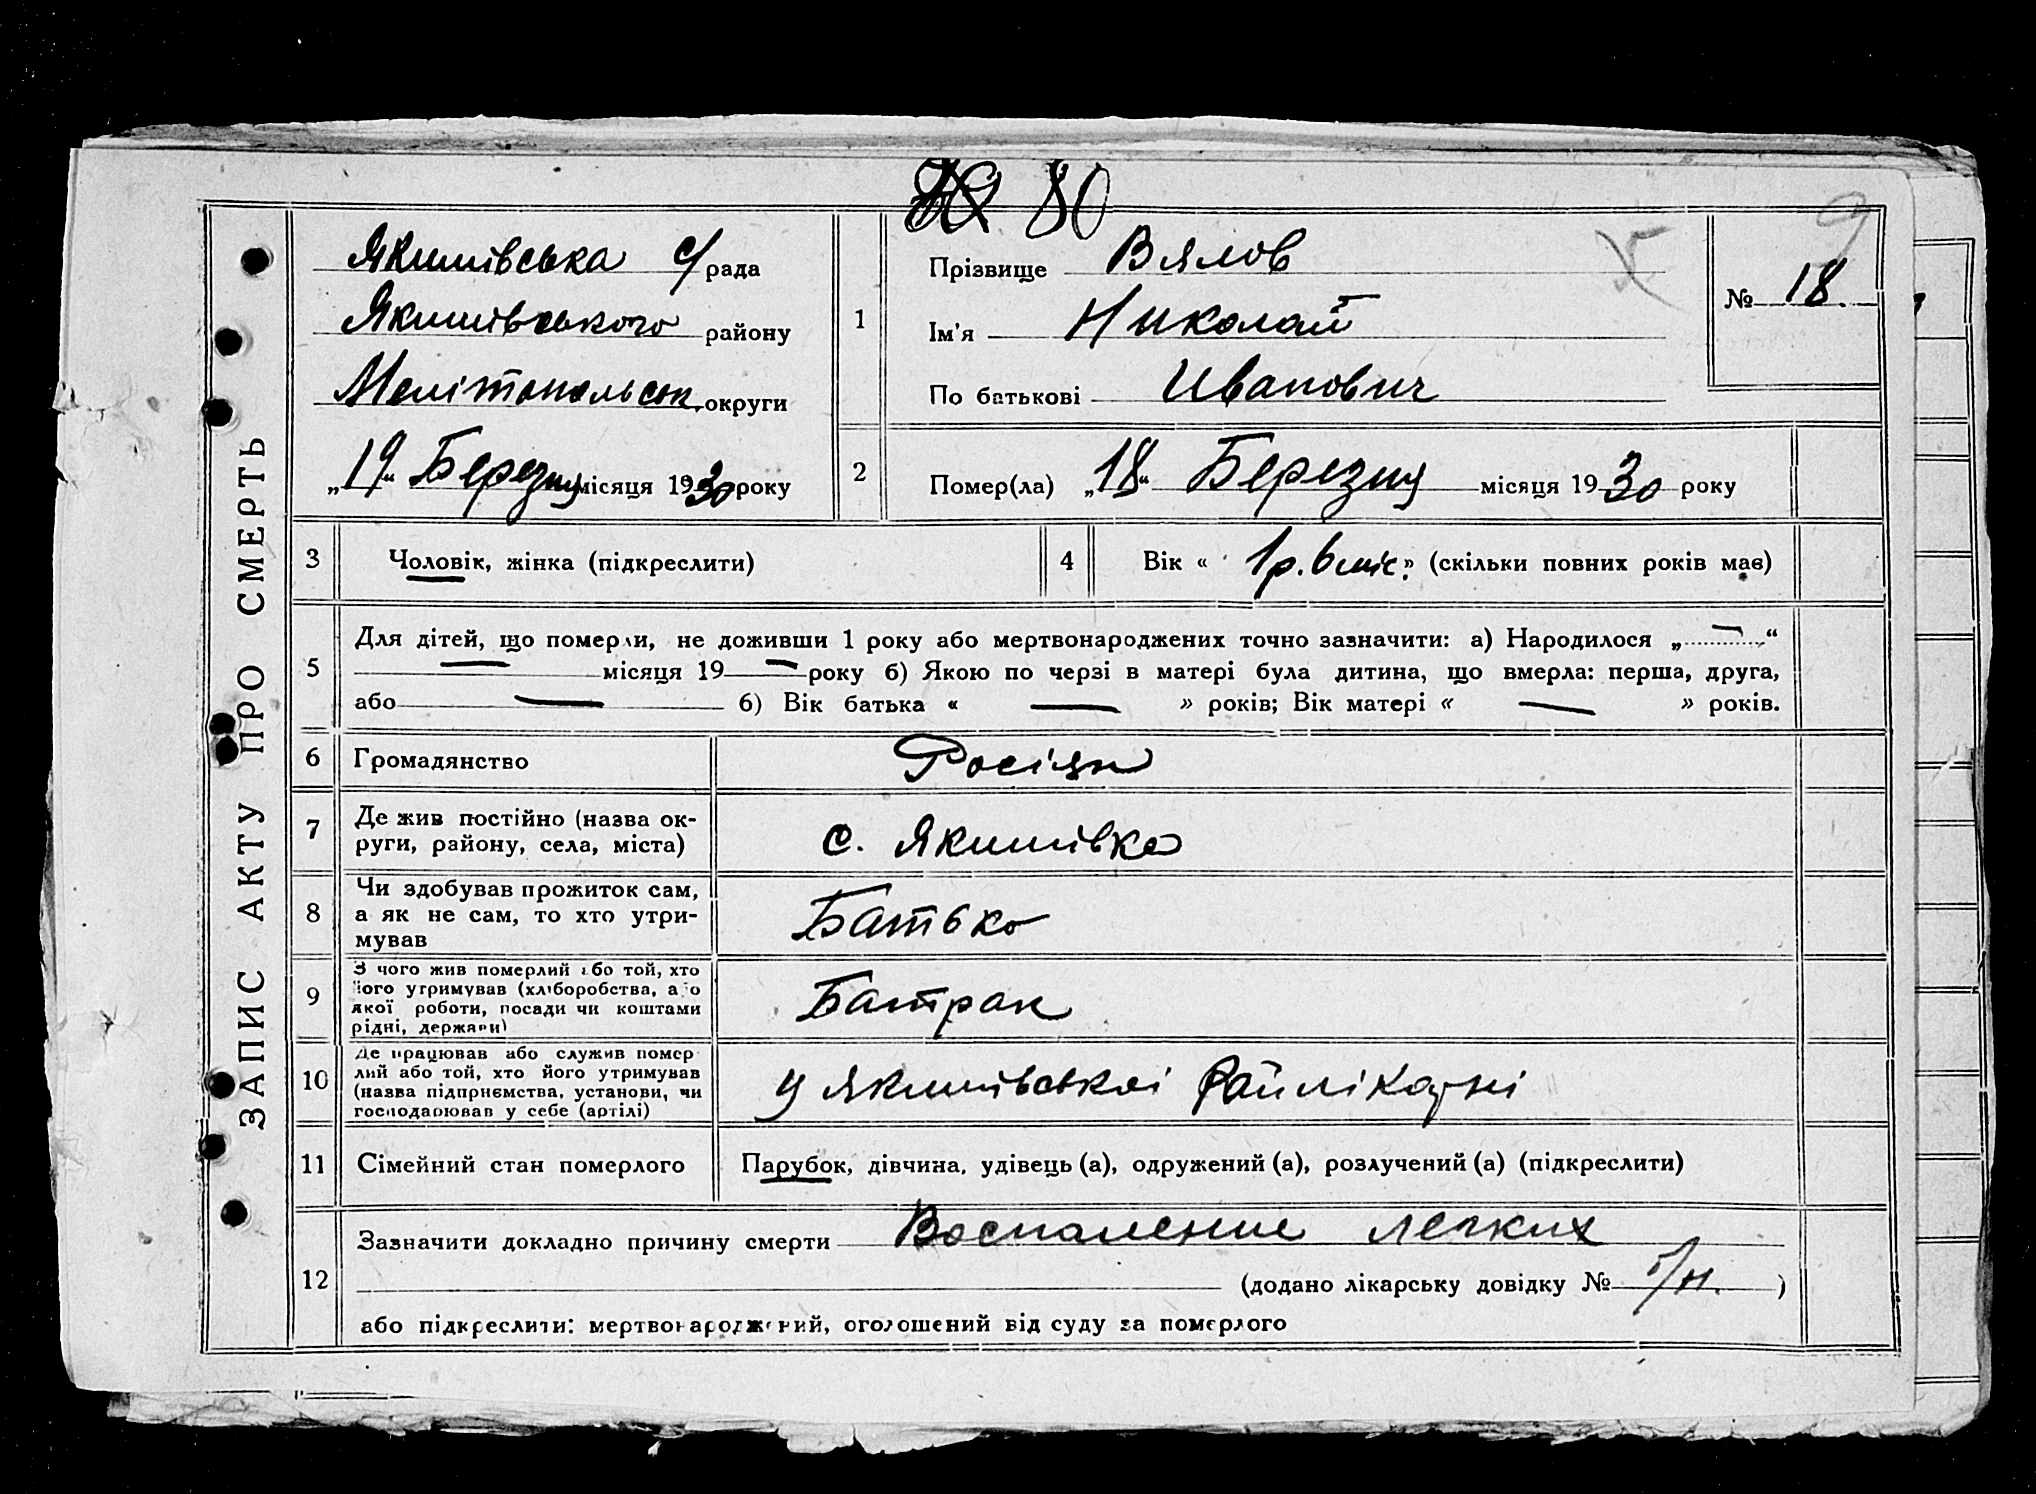 80
Якимівська с/рада
Якимівського району
Мелітопольськ. округи
„19“ Березня місяця 1930 року
ЗАПИС АКТУ ПРО СМЕРТЬ
1
Прізвище Вялов
Ім'я Николай
По батькові Иванович
№ 18.
2 Помер(ла) „18“ Березня місяця 1930 року
3 Чоловік, жінка (підкреслити)
4 Вік « 1 р. 6 міс. » (скільки повних років має)
5
Для дітей, що померли, не доживши 1 року або мертвонароджених точно зазначити: а) Народилося „—“
— місяця 19— року б) Якою по черзі в матері була дитина, що вмерла: перша, друга,
або — б) Вік батька « — » років; Вік матері « — » років.
6 Громадянство Росіян
7 Де жив постійно (назва ок-
руги, району, села, міста)
с. Якимівка
8 Чи здобував прожиток сам,
а як не сам, то хто утри-
мував
Батько
9 З чого жив померлий або той, хто
його утримував (хліборобства, або
якої роботи, посади чи коштами
рідні, держави)
Батрак
10 Де працював або служив помер-
лий або той, хто його утримував
(назва підприємства, установи, чи
господарював у себе (артілі)
У Якимівській Райлікарні
11 Сімейний стан померлого Парубок, дівчина, удівець (а), одружений (а), розлучений (а) (підкреслити)
12
Зазначити докладно причину смерти Воспаление легких
(додано лікарську довідку № б/н. )
або підкреслити: мертвонароджений, оголошений від суду за померлого